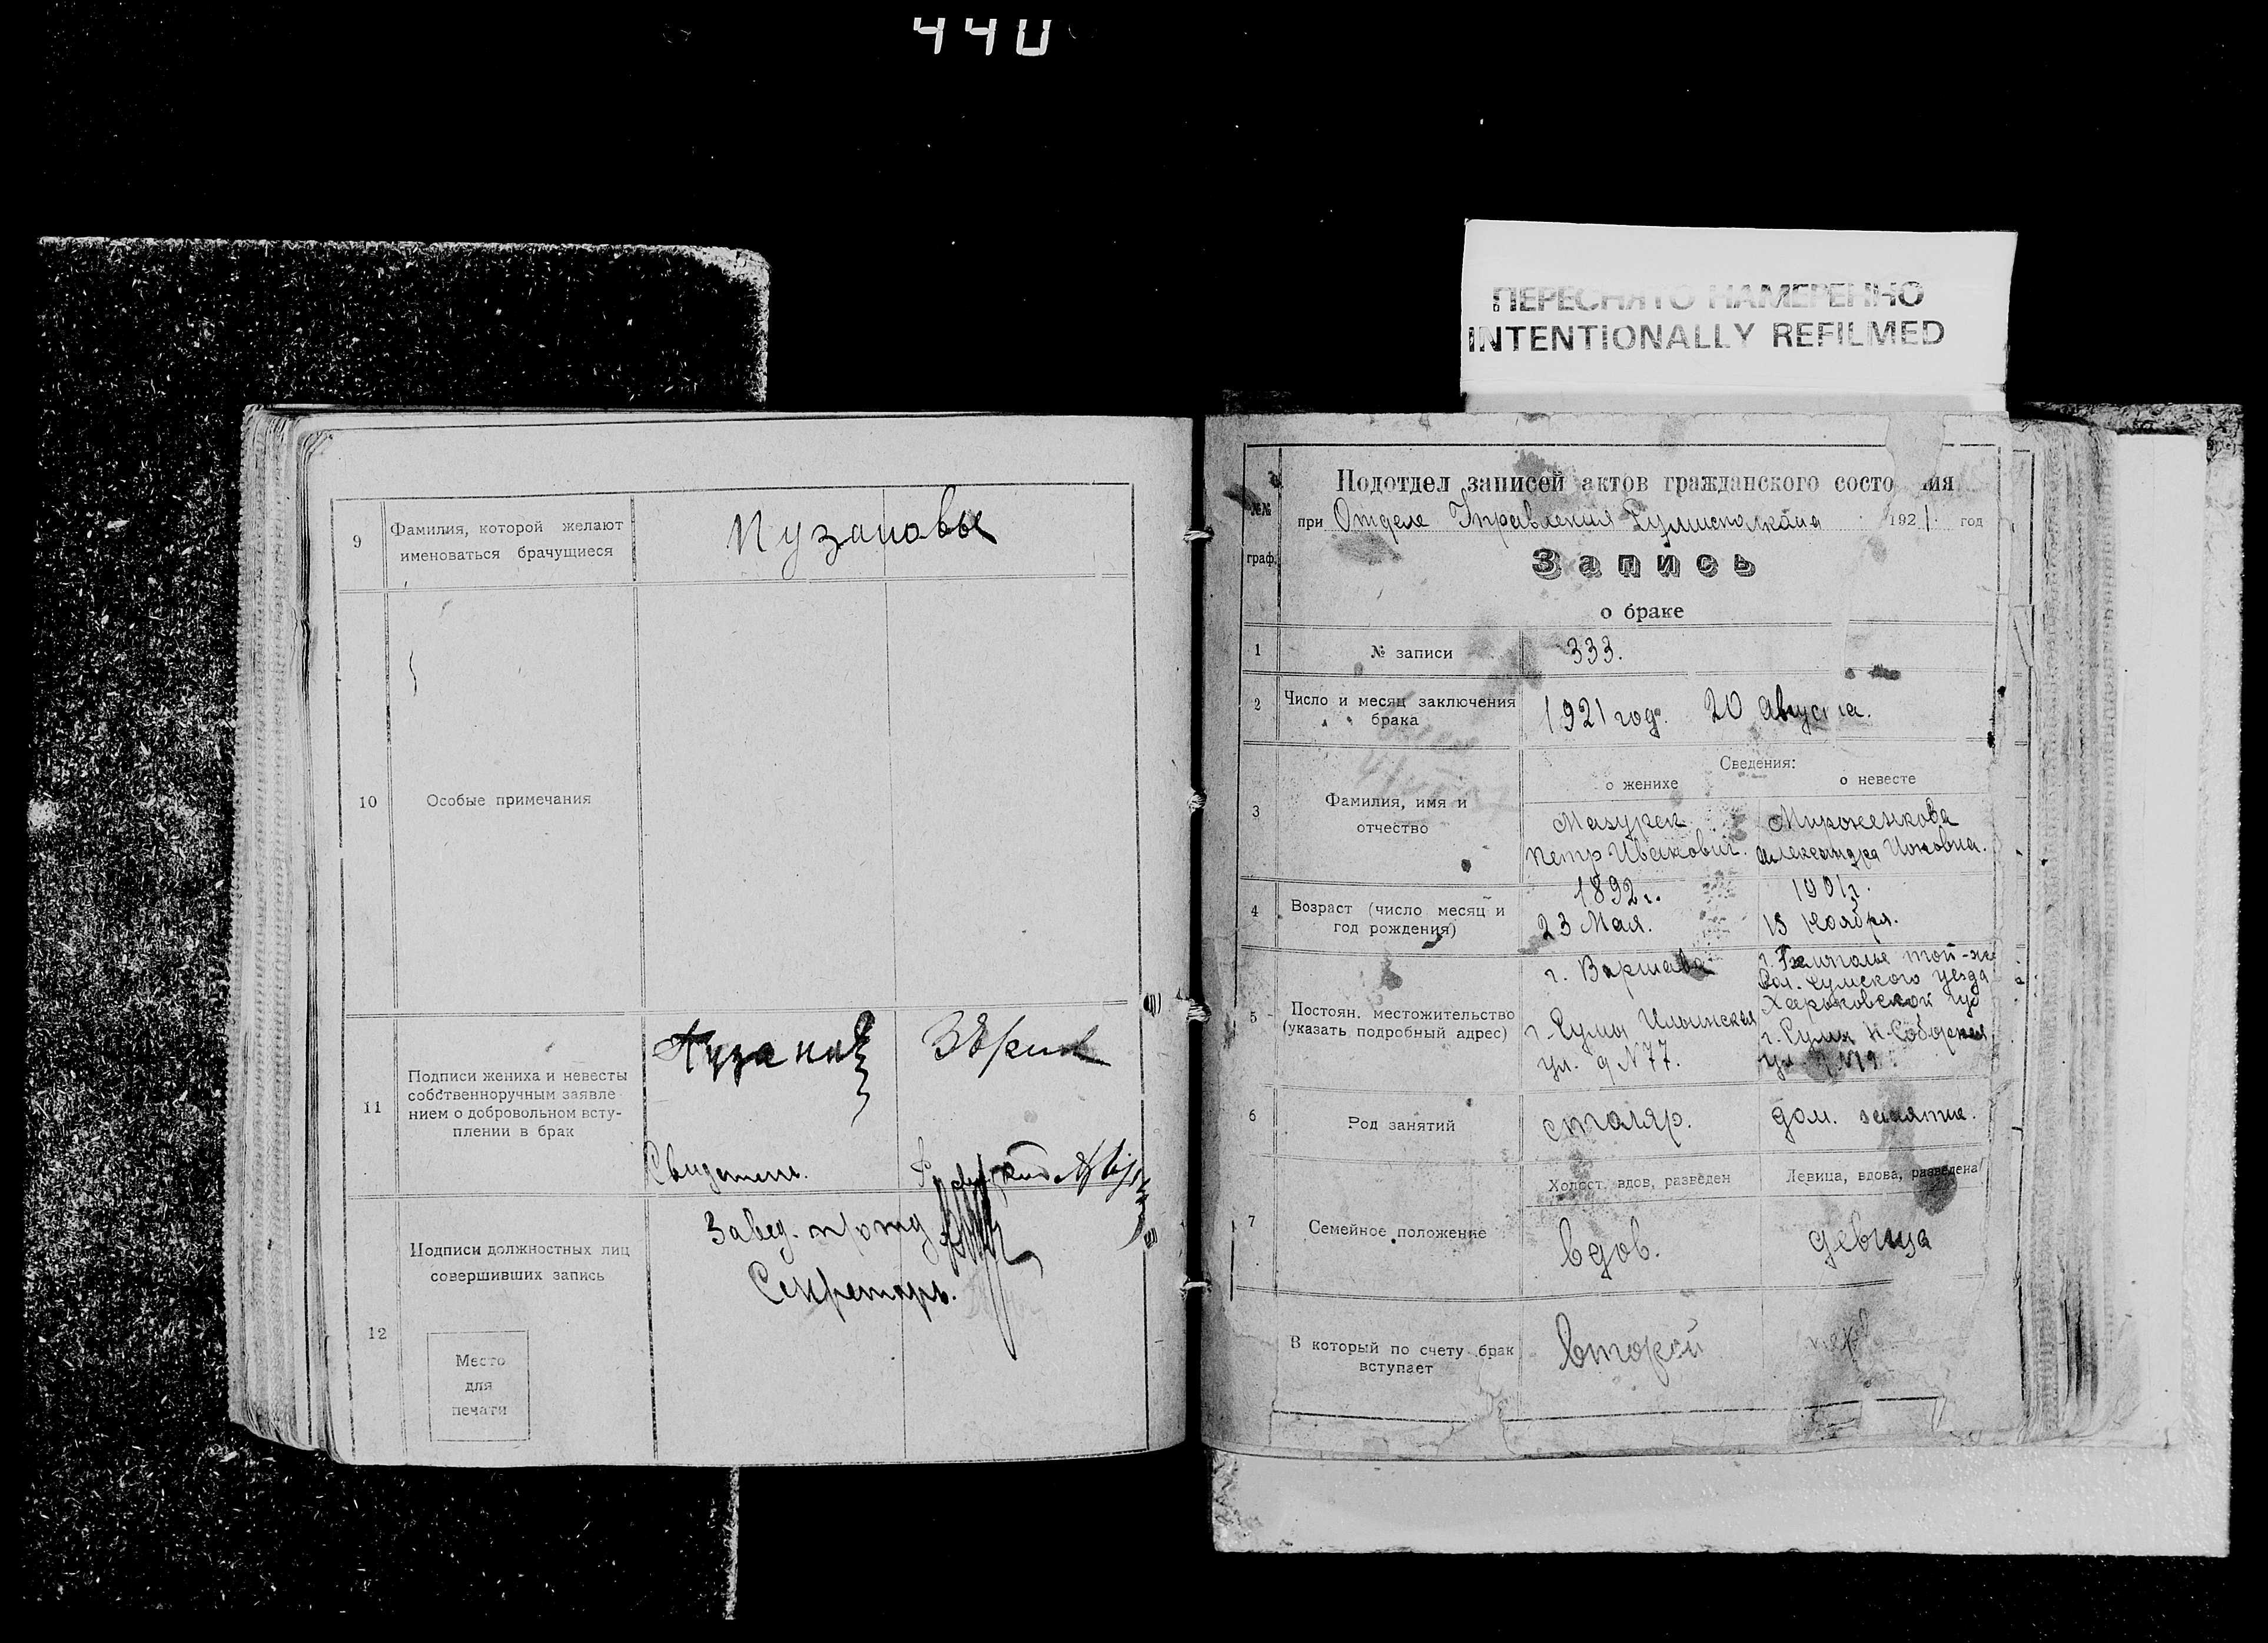 440
ПЕРЕСНЯТО НАМЕРЕННО
INTENTIONALLY REFILMED
9
Фамилия, которой желают
именоваться брачущиеся
Пузановы
10
Особые примечания
11
Подписи жениха и невесты
собственноручным заявле-
нием о добровольном всту-
плении в брак
Свидетель.
12
Подписи должностных лиц
совершивших запись
Завед. п/отд
Секретарь.
Место
для
печати
№№
граф.
Подотдел записей актов гражданского состо ния
при Отделе Управления 1921 год
Запись
о браке
1
№ записи
333.
2
Число и месяц заключения
брака
1921 год. 20 Августа.
3
Фамилия, имя и
отчество
Сведения:
о женихе
о невесте
Мазурек
Петр Иванович.
Мироненкова
Александра Ионовна.
4
Возраст (число месяц и
год рождения)
1892 г.
23 Мая.
1901 г.
15 Ноября.
5
Постоян. местожительство
(указать подробный адрес)
г. Варшава
г. Сумы Ильинская
ул. д N 77.
той-же
Вол. Сумского уезда
Харьковской губ
г. Сумы Н-Соборная
6
Род занятий
столяр.
дом. занятие.
7
Семейное положение
Холост, вдов, разведен
Девица, вдова, разведена
вдов.
девица
В который по счету брак
вступает
второй